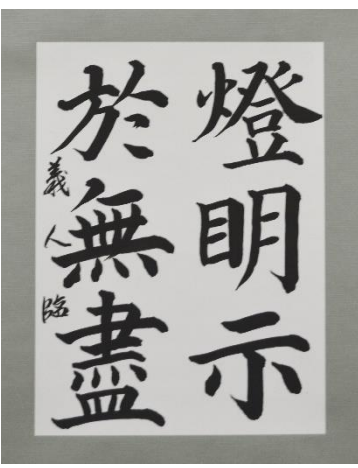 燈明示
於無盡
義人臨